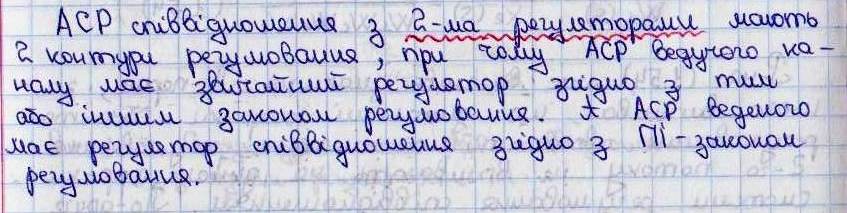 АСР співвідношення з 2-ма регуляторами мають
2 контури регулювання, при чому АСР ведучого ка-
налу має звичайний регулятор згідно з тим
або іншим законом регулювання. А АСР веденого
має регулятор співвідношення згідно з ПІ-законом
регулювання.